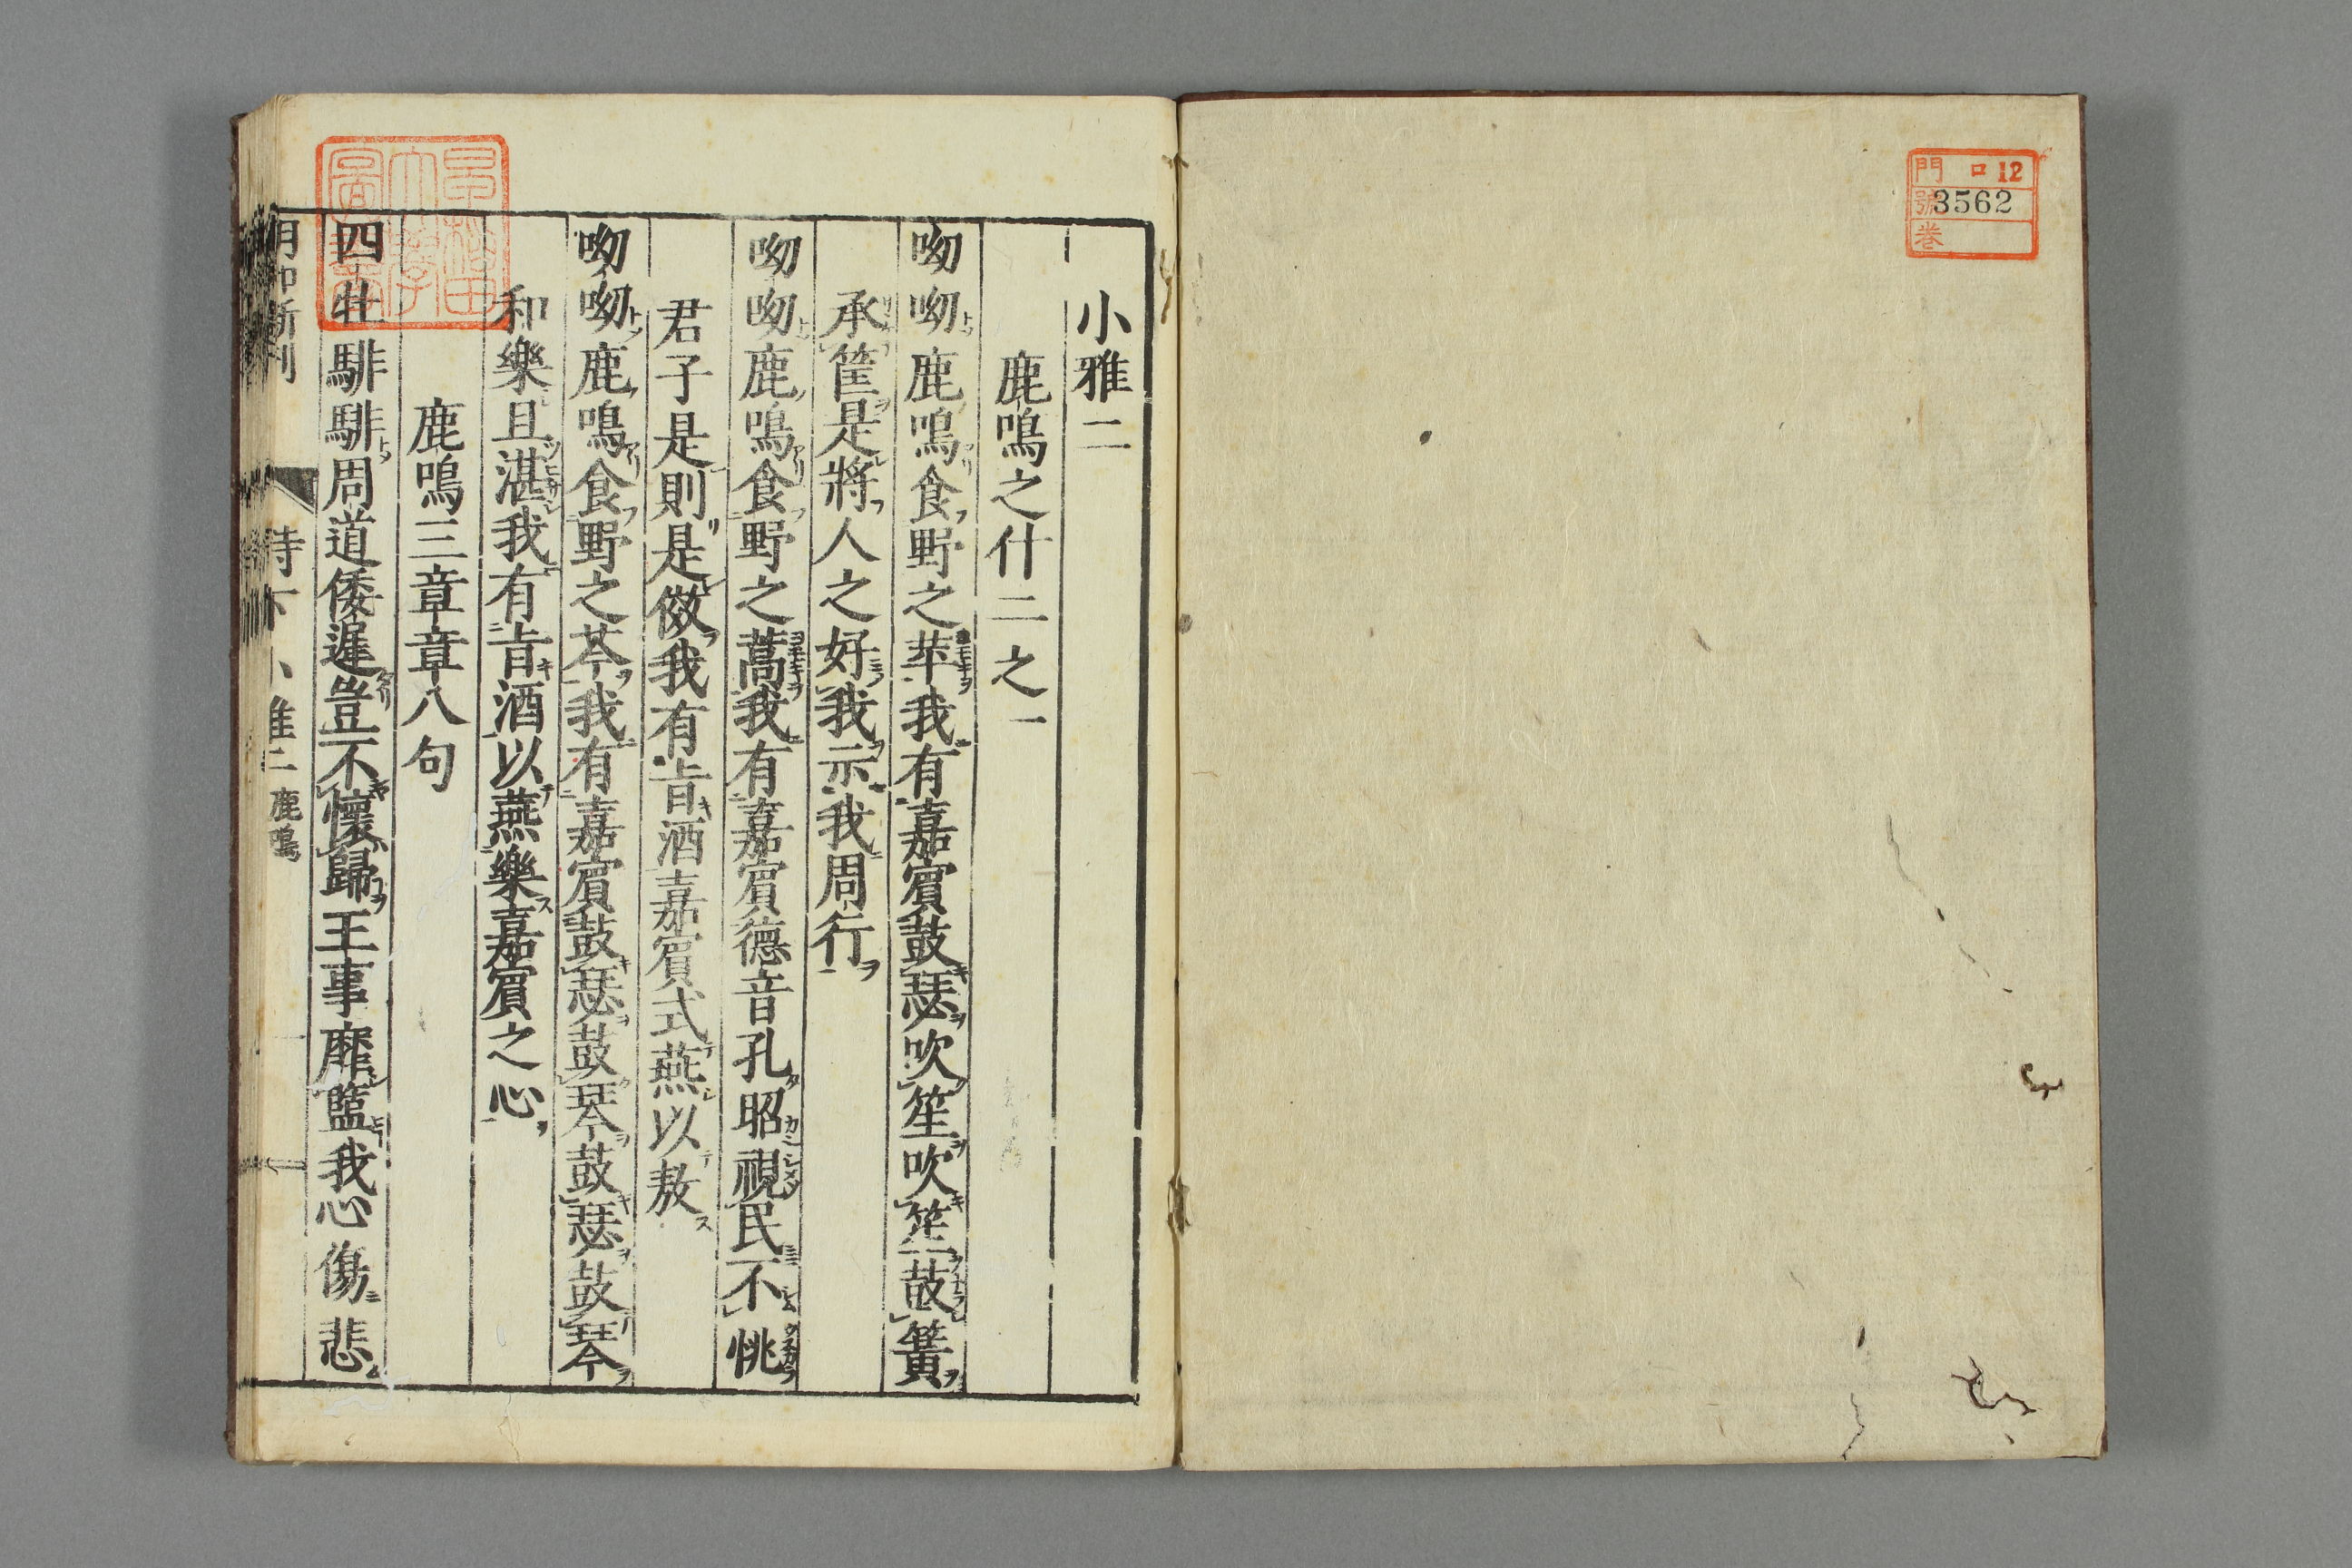 門 ロ 12
號 3562
巻
小雅二
鹿鳴之什二之一
呦呦鹿鳴食野之苹我有嘉賔鼓瑟吹笙吹笙鼓簧
承筐是將人之好我示我周行
呦呦鹿鳴食野之蒿我有嘉賔德音孔昭視民不恌
君子是則是傚我有㫖酒嘉賔式燕以敖
呦呦鹿鳴食野之芩我有嘉賔鼓瑟鼓琴鼓瑟鼓琴
和樂且湛我有㫖酒以燕樂嘉賔之心
鹿鳴三章章八句
四牡騑騑周道倭遲豈不懷歸王事靡盬我心傷悲
詩下 小雅二 鹿鳴